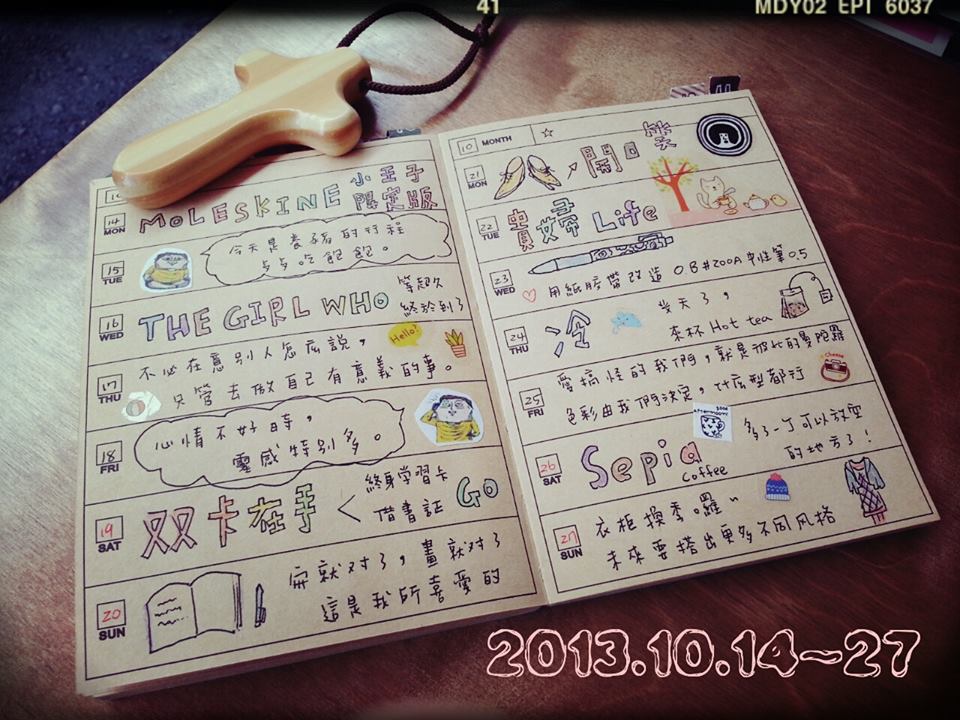 41
MDY02 EPI 6037
14 MON
MOLESKINE
小王子
限定版
15 TUE
今天是養豬的行程
步步吃飽飽。
16 WED
THE GIRL WHO
等超久
終於到了
Hello!
17 THU
不必在意別人怎庅說,
只管去做自己有意義的事。
18 FRI
心情不好時,
靈感特別多。
19 SAT
双卡在手
終身學習卡
借書証
GO
20 SUN
就对了,畫就对了
這是我所喜愛的
10 MONTH ☆
21 MON
開口笑
22 TUE
貴婦 Life
23 WED
用紙膠帶改造 OB#200A中性筆0.5
24 THU
冷
天了,
來杯 Hot tea
25 FRI
愛搞怪的我們,就是彼此的曼陀羅
色彩由我們決定,什庅型都行
Cheese
26 SAT
Sepia
Coffee
afternoon
多了一个可以放空
的地方了!
27 SUN
衣柜換季囉~
未來要搭出更多不同风格
2013.10.14~27